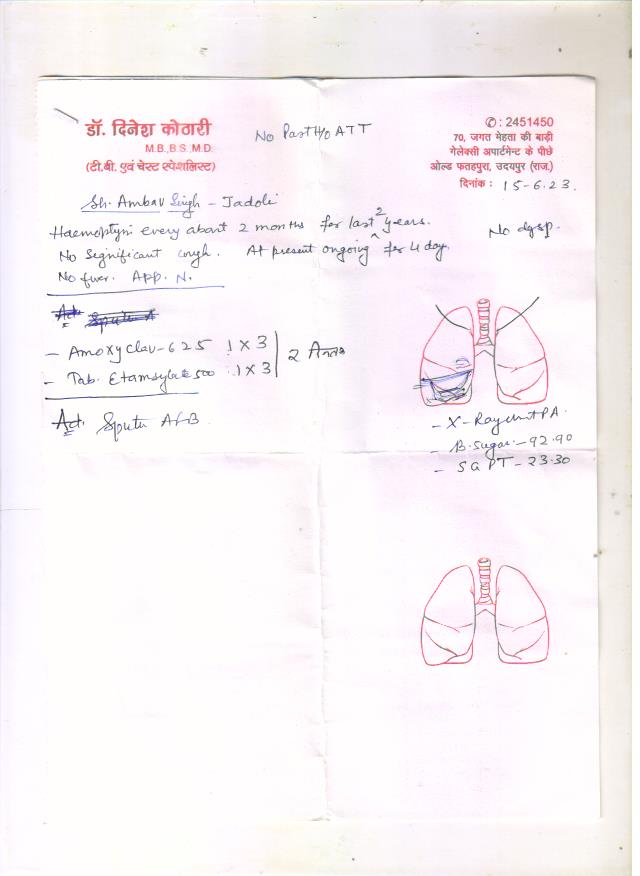 डॉ. दिनेश कोठारी
M.B.,B.S.,M.D.
(टी.बी. एवं चेस्ट स्पेशलिस्ट)
No Past H/o ATT
✆ : 2451450
70, जगत मेहता की बाड़ी
गेलेक्सी अपार्टमेन्ट के पीछे
ओल्ड फतहपुरा, उदयपुर (राज.)
दिनांक : 15-6-23.
Sh. Ambav Singh - Jadoli
Haemoptysis every about 2 months for last 2 years.
No dysp.
No significant cough. At present ongoing for 4 day.
No fever. App. N.
Ad. Sputu A
- Amoxyclav-625 1 x 3
- Tab. Etamsylate 500 1 x 3
2
Ad. Sputu AFB
- X-Ray chest PA.
- B.Sugar - 92.90
- SGPT - 23.30